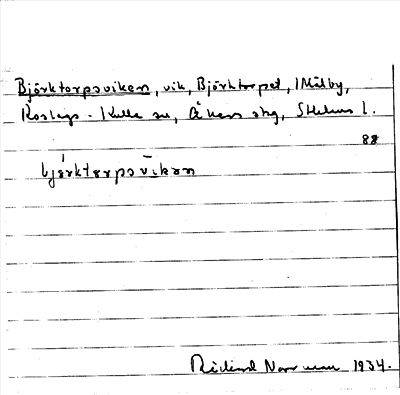 Björktorpsviken, vik, Björktorpet, 1 Målby,
Roslags-Kulla sn, Åkers skg, Sthlms l.
88
bjørktorpsvikən
Rickard Norrman 1934.